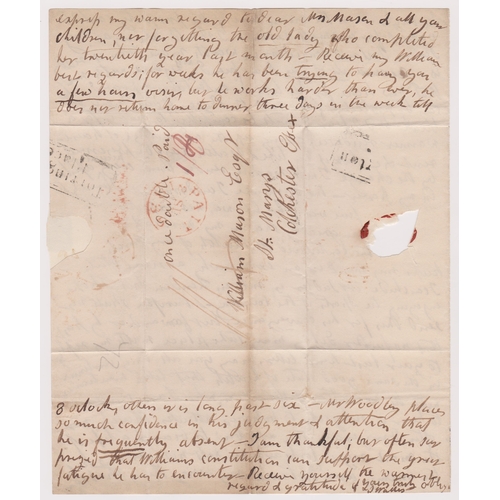 express my warm regard to dear Mrs Mason & all your
children, nor forgetting the old lady, who completed
her twentieth year last month - Receive my William
best regards; for weeks he has been trying to pay you
a few hours visit, but he works harder than ever, he
does not return home to dinner three days in the week till
once double Paid
1/8
PAID
William Mason Esqr
St. Marys
Colchester Essex
8 oclock, often it is long past six - Mr Woodley places
so much confidence in his judgment & attention that
he is frequently absent - I am thankful, but often sur
prized that Williams constitution can support the great
fatigue he has to encounter. Receive yourself the warmest
regard & gratitude of yours